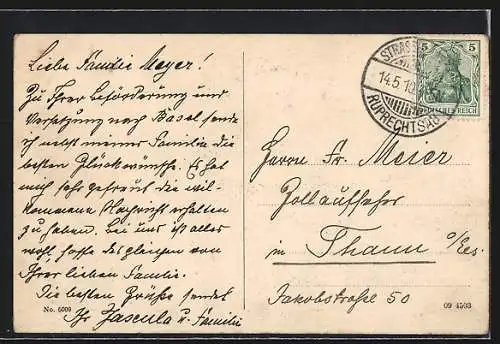 Liebe Familie Meyer!
Zu Ihrer Beförderung und
Versetzung nach Basel sende
ich nebst meiner Familie die
besten Glückwünsche. Es hat
mich sehr gefreut die wil-
kommene Nachricht erhalten
zu haben. Bei uns ist alles
wohl, hoffe desgleichen von
Ihrer lieben Familie.
Die besten Grüße sendet
Ihr Jascula u. Familie
No. 6009
STRASSB
14.5.10
RUPRECHTSAU
5 5
DEUTSCHES REICH
Herrn Fr. Meier
Zollaufseher
in Thann o/Els.
Jakobstraße 50
09 4503